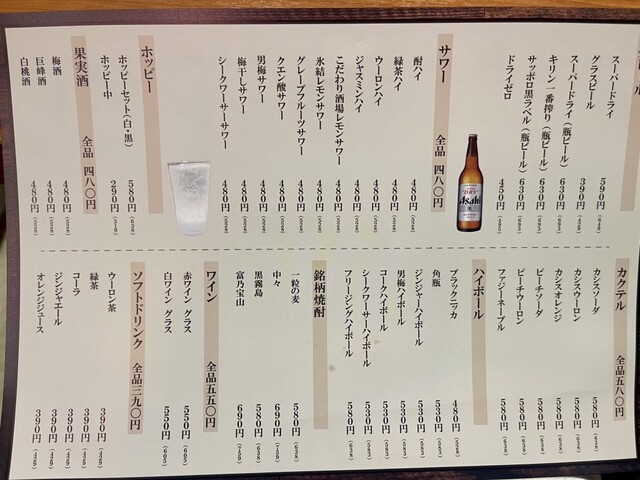 ール
スーパードライ 590円(649)
グラスビール 390円(429)
スーパードライ(瓶ビール) 630円(693)
キリン一番搾り(瓶ビール) 630円(693)
サッポロ黒ラベル(瓶ビール) 630円(693)
ドライゼロ 450円(495)
DRY
Asahi
サワー 全品 四八〇円
酎ハイ 480円(528)
緑茶ハイ 480円(528)
ウーロンハイ 480円(528)
ジャスミンハイ 480円(528)
こだわり酒場レモンサワー 480円(528)
氷結レモンサワー 480円(528)
グレープフルーツサワー 480円(528)
クエン酸サワー 480円(528)
男梅サワー 480円(528)
梅干しサワー 480円(528)
シークワーサーサワー 480円(528)
ホッピー
ホッピーセット(白・黒) 580円(638)
ホッピー中 290円(319)
果実酒 全品 四八〇円
梅酒 480円(528)
巨峰酒 480円(528)
白桃酒 480円(528)
カクテル 全品五八〇円
カシスソーダ 580円(638)
カシスウーロン 580円(638)
カシスオレンジ 580円(638)
ピーチソーダ 580円(638)
ピーチウーロン 580円(638)
ファジーネーブル 580円(638)
ハイボール
ブラックニッカ 480円(528)
角瓶 530円(583)
ジンジャーハイボール 530円(583)
男梅ハイボール 530円(583)
コークハイボール 530円(583)
シークワーサーハイボール 530円(583)
フリージングハイボール 580円(638)
銘柄焼酎
一粒の麦 580円(638)
中々 690円(759)
黒霧島 580円(638)
富乃宝山 690円(759)
ワイン 全品五五〇円
赤ワイン グラス 550円(605)
白ワイン グラス 550円(605)
ソフトドリンク 全品三九〇円
ウーロン茶 390円(429)
緑茶 390円(429)
コーラ 390円(429)
ジンジャエール 390円(429)
オレンジジュース 390円(429)